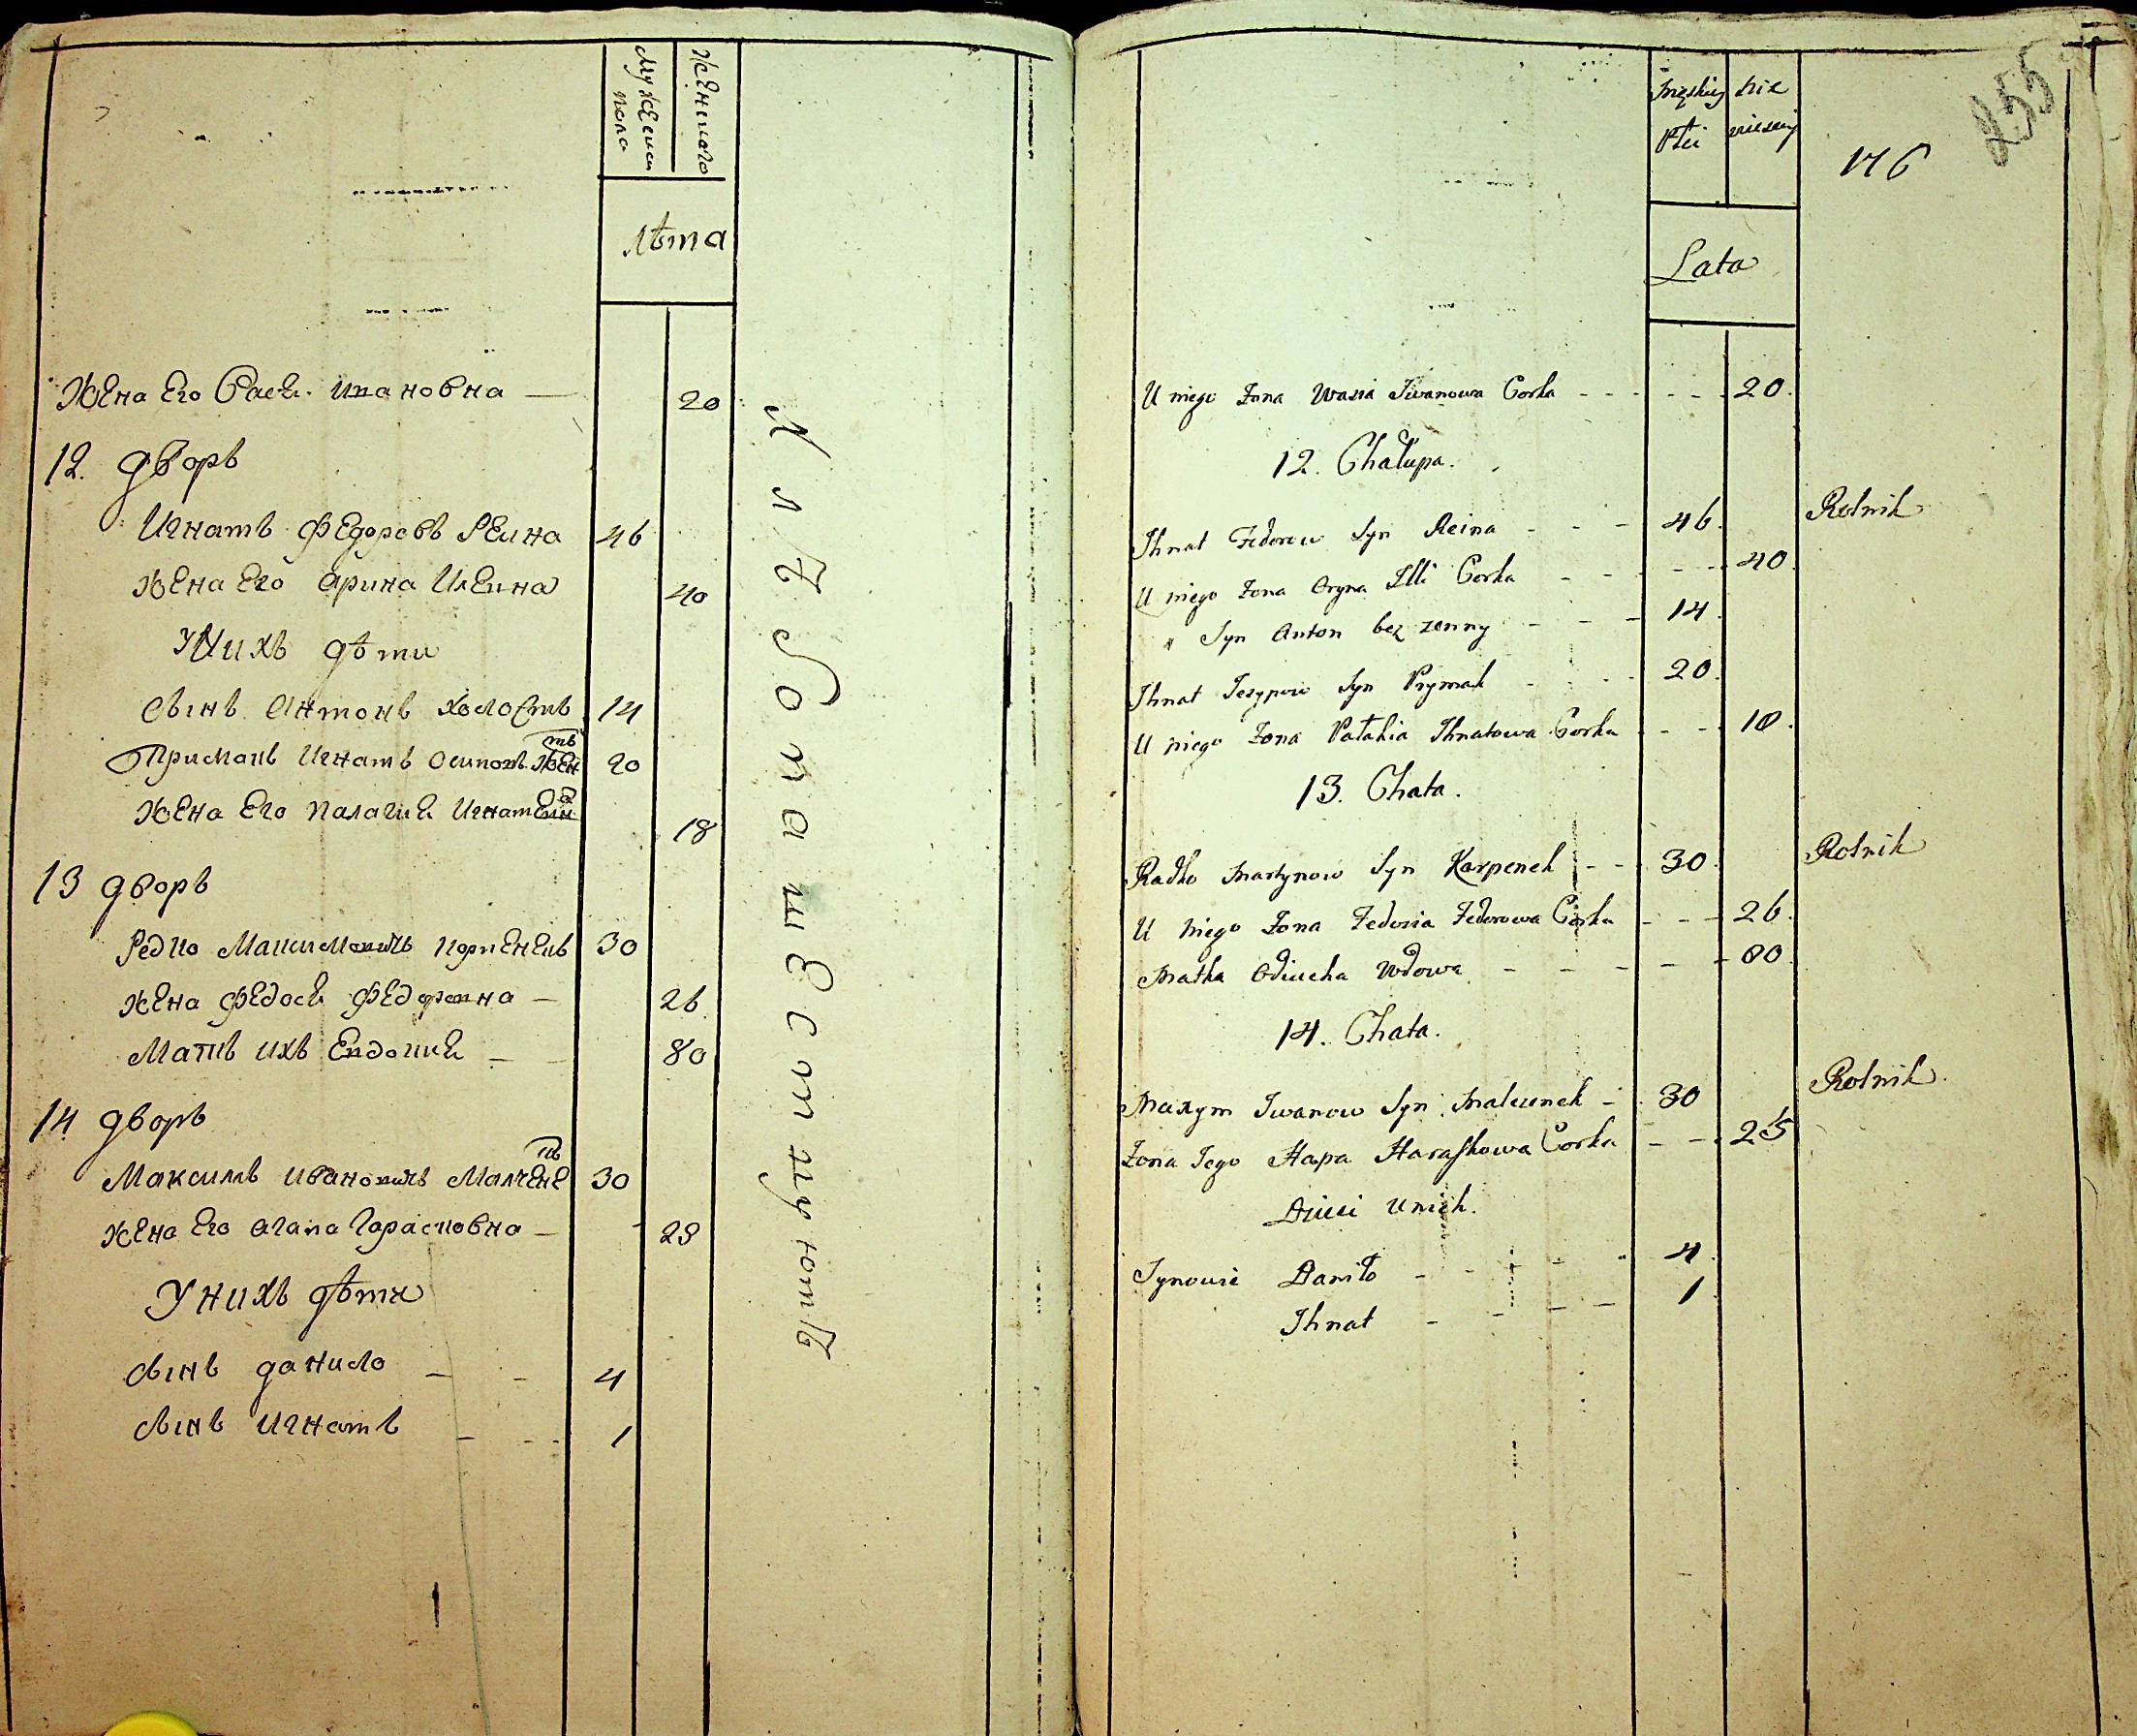 мужеска пола
женскаго
лѣта
Жена Его Васи. Ивановна — 20
12. дворъ
Игнатъ Федоровъ Реина 46
Жена Его Арина Илеина 40
У Нихъ дѣти
Сынъ Антонъ холостъ 14
Примакъ Игнатъ Осиповъ женатъ 20
Жена Его Палагия Игнатеина 18
13 дворъ
Редко Карпенекъ 30
Жена Федося Федоровна — 26
Матъ ихъ Евдокия — 80
14 дворъ
Максимъ Ивановичъ Малченекъ 30
Жена Его Агапа Гарасковна — 25
У нихъ дѣти
Сынъ данило — - 4
Сынъ Игнатъ — - - 1
Хлѣбопашествуютъ
255
176
męskiey Płci
Lata
U niego Żona Wasia Iwanowa Corka - - - - - - 20.
12. Chałupa.
Ihnat Fedorow Syn Reina - - - 46. Rolnik
U niego Żona Oryna Illi Corka - - - - - 40.
" Syn Anton bez zenny - - - 14.
Ihnat Jezypow Syn Prymak - - - - 20.
U niego Żona Pałahia Ihnatowa Corka - - - 18.
13. Chata.
Radko Martynow Syn Karpenek - - - 30. Rolnik
U niego Żona Fedosia Fedorowa Corka - - - 26.
Matka Odiucha Wdowa - - - - - 80.
14. Chata.
Maxym Iwanow Syn Malczenek - 30 Rolnik.
Żona Jego Hapa Haraskowa Corka - - - 25
Dzieci u nich.
Synowie Daniło - - - - - 4.
Ihnat - - - - 1